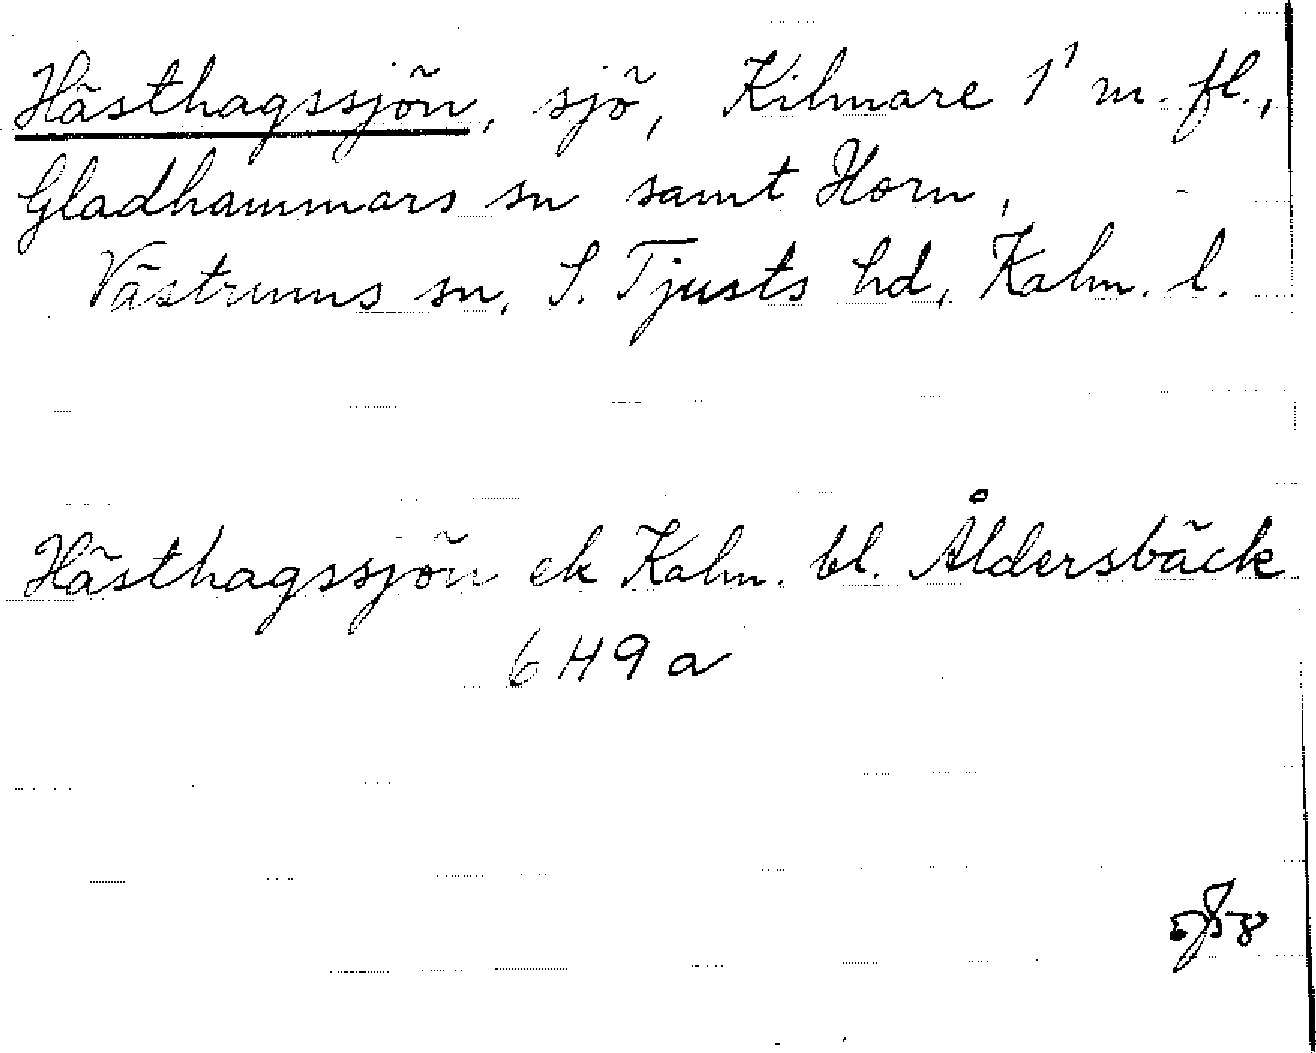 Hästhagssjön, sjö, Kilmare 1¹ m. fl.,
Gladhammars sn samt Horn,
Västrums sn, S. Tjusts hd, Kalm. l.
Hästhagssjön ek Kalm. bl. Åldersbäck
6 H 9 a